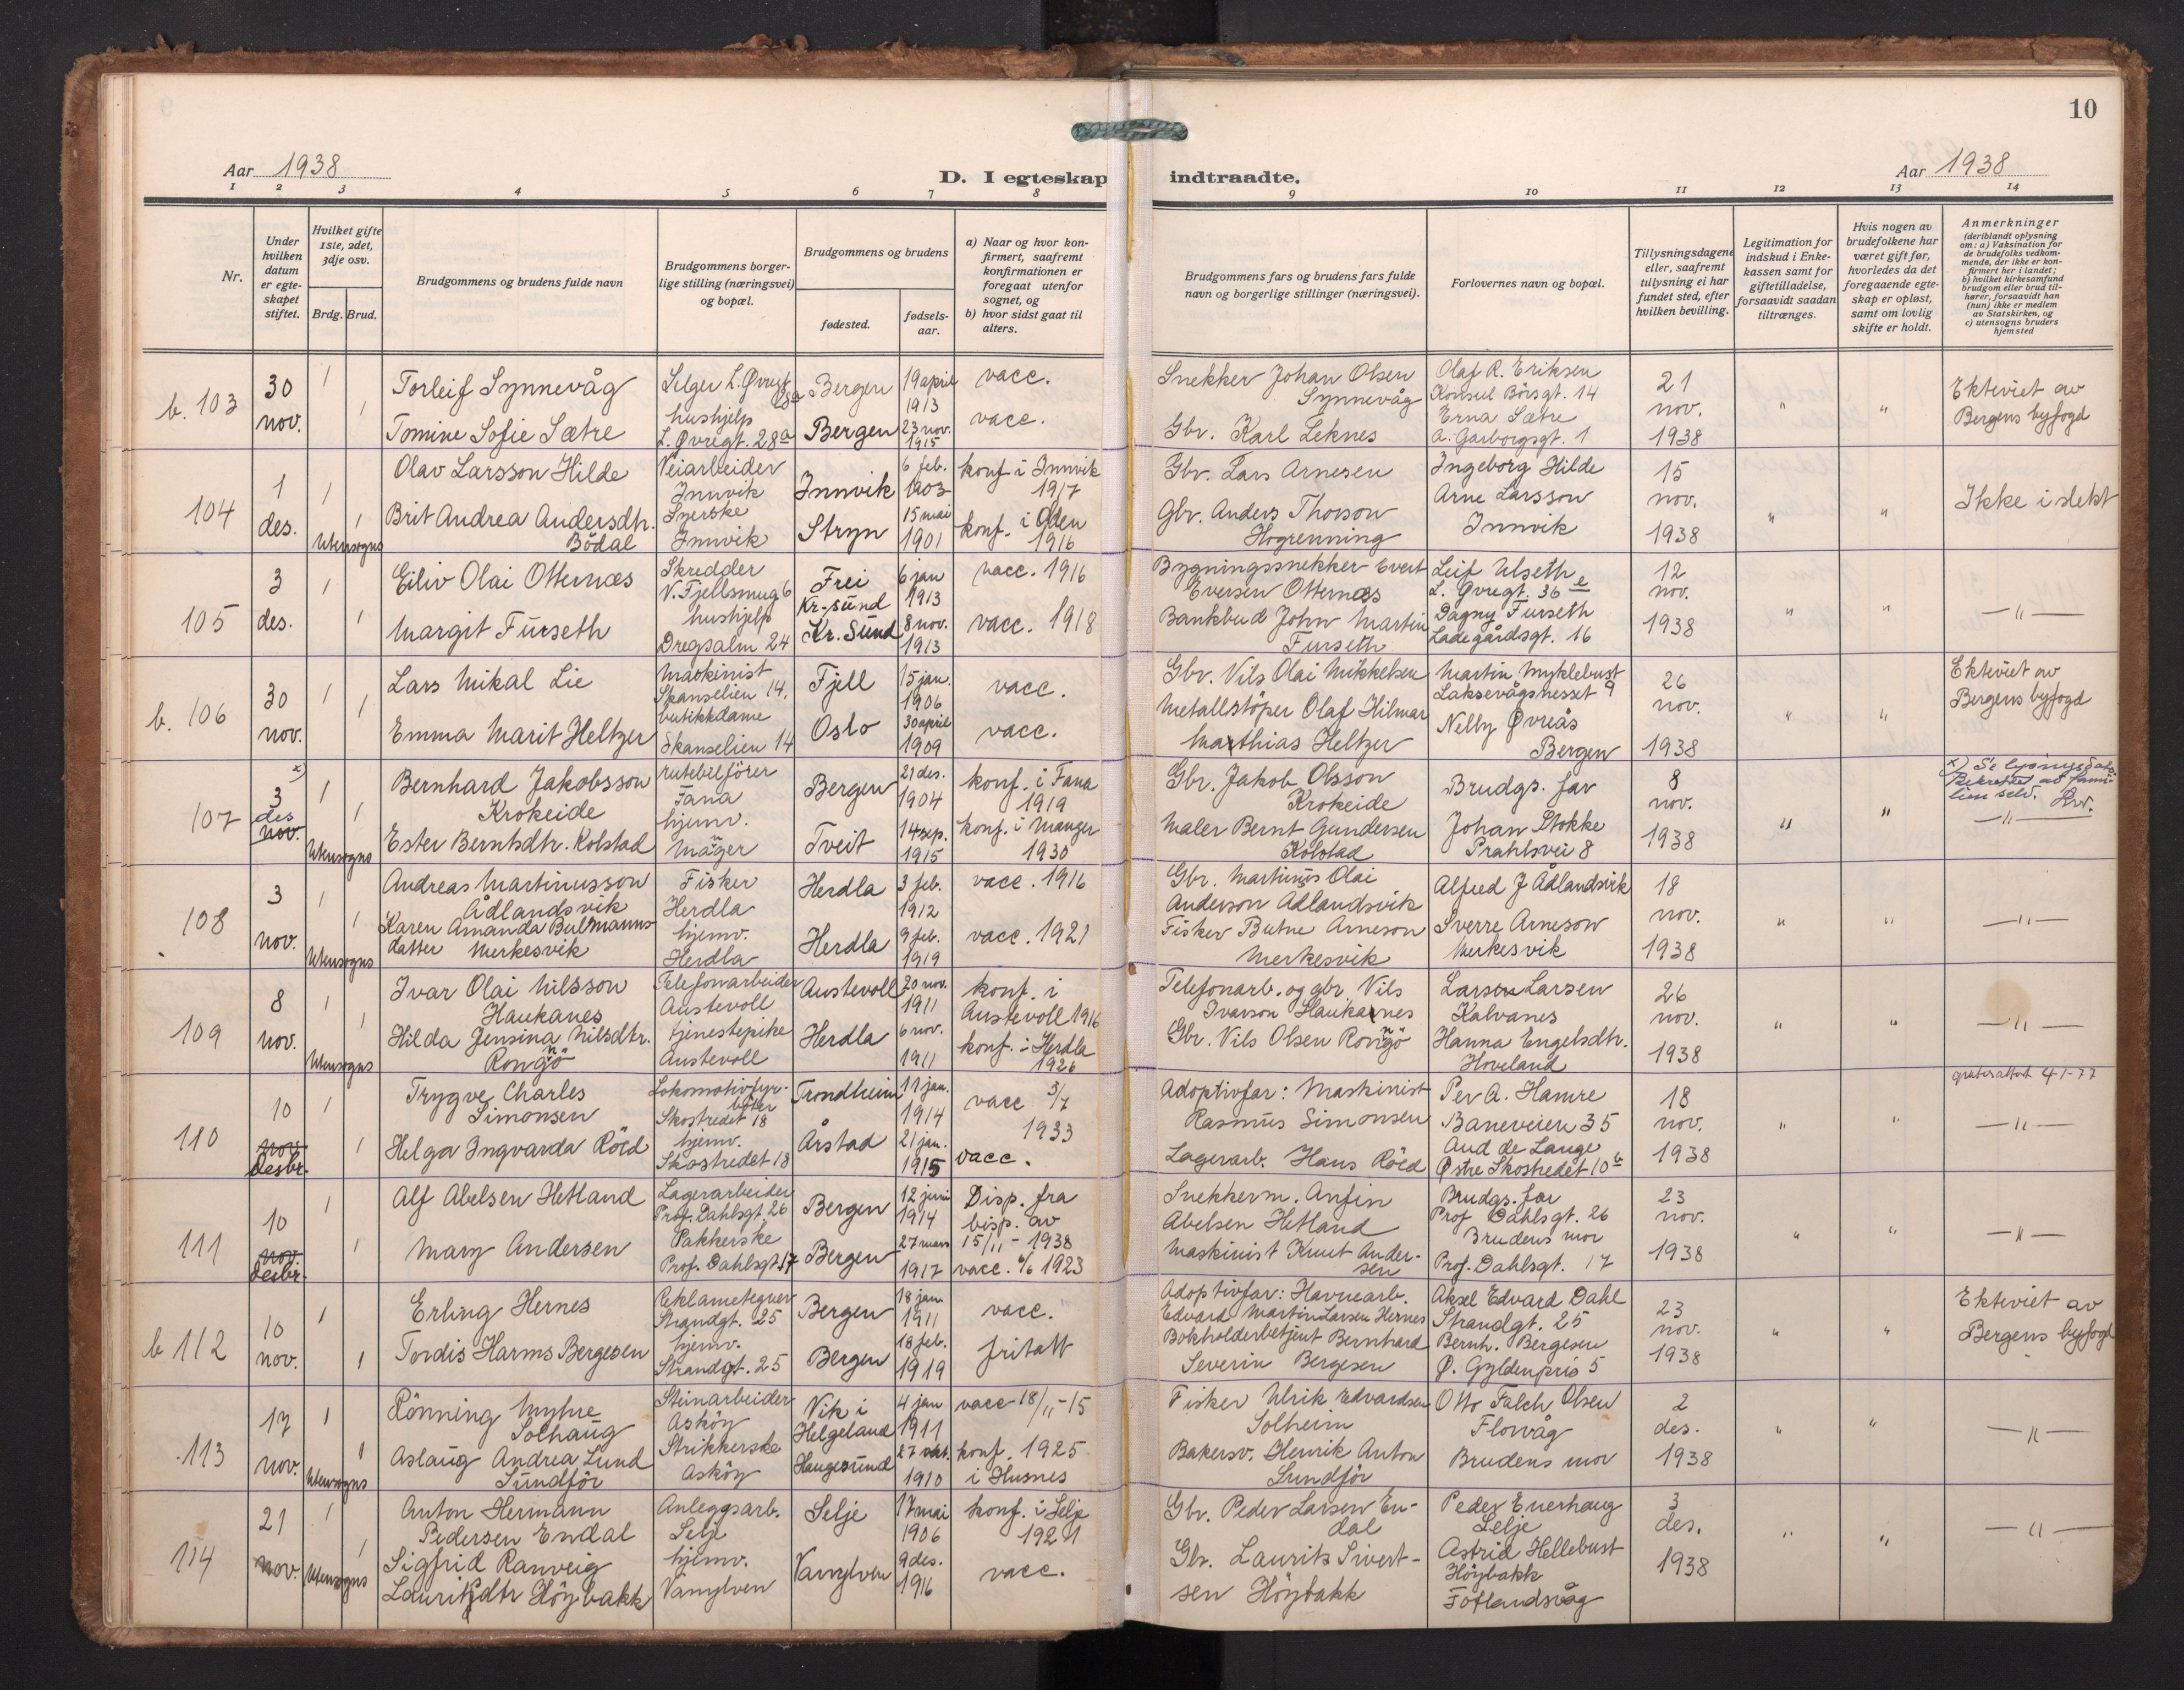 10
Aar 1938
D. I egteskap indtraadte.
Aar 1938
1 2 3 4 5 6 7 8 9 10 11 12 13 14
Nr.
Under hvilken datum er egteskapet stiftet.
Hvilket gifte 1ste, 2det, 3dje osv.
Brdg. Brud.
Brudgommens og brudens fulde navn
Brudgommens borgerlige stilling (næringsvei) og bopæl.
Brudgommens og brudens
fødested.
fødselsaar.
a) Naar og hvor konfirmert, saafremt konfirmationen er foregaat utenfor sognet, og
b) hvor sidst gaat til alters.
Brudgommens fars og brudens fars fulde navn og borgerlige stillinger (næringsvei).
Forlovernes navn og bopæl.
Tillysningsdagene eller, saafremt tillysning ei har fundet sted, efter hvilken bevilling.
Legitimation for indskud i Enkekassen samt for giftetilladelse, forsaavidt saadan tiltrænges.
Hvis nogen av brudefolkene har været gift før, hvorledes da det foregaaende egteskap er opløst, samt om lovlig skifte er holdt.
Anmerkninger
(deriblandt oplysning om: a) Vaksination for de brudefolks vedkommende, der ikke er konfirmert her i landet; b) hvilket kirkesamfund brudgom eller brud tilhører, forsaavidt han (hun) ikke er medlem av Statskirken, og c) utensogns bruders hjemsted
b. 103
30 nov.
1
1
Torleif Synnevåg
Selger L. Øvregt 28a
Bergen
19 april 1913
vacc.
Snekker Johan Olsen Synnevåg
Olaf R. Eriksen
Konsul Börsgt. 14
21 nov. 1938
" "
Ektviet av Bergens byfogd
Tomine Sofie Sætre
hushjelp
L. Øvregt. 28a
Bergen
23 nov. 1915
vacc.
Gbr. Karl Leknes
Erna Sætre
A. Garborgsgt. 1
104
1 des.
1
1
Utensogns
Olav Larsson Hilde
Veiarbeider
Innvik
Innvik
6 feb. 1903
konf. i Innvik 1917
Gbr. Lars Arnesen
Ingeborg Hilde
15 nov. 1938
" "
Ikke i slekt
Brit Andrea Andersdtr. Bödal
Syerske
Innvik
Stryn
15 mai 1901
konf. i Oden 1916
Gbr. Anders Thorson Hogrenning
Arne Larsson
Innvik
105
3 des.
1
1
Eiliv Olai Otternæs
Skredder
V. Fjellsmug 6
Frei Kr-sund
6 jan 1913
vacc. 1916
Bygningssnekker Evert Eversen Otternæs
Leif Ulseth
L. Øvregt. 36 e
12 nov. 1938
" "
— " —
Margit Furseth
hushjelp
Dregsalm 24
Kr. Sund
8 nov. 1913
vacc. 1918
Bankbud John Martin Furseth
Dagny Furseth
Ladegårdsgt. 16
b. 106
30 nov.
1
1
Lars Mikal Lie
Maskinist
Skanselien 14.
Fjell
15 jan. 1906
vacc.
Gbr. Nils Olai Mikkelsen
Martin Myklebust
Laksevågsnesset 9
26 nov. 1938
" "
Ektviet av Bergens byfogd
Emma Marit Heltzer
butikkdame
Skanselien 14
Oslo
30 april 1909
vacc.
Metallstöper Olaf Hilmar Mathias Heltzer
Nelly Øvreås
Bergen
107
x)
3 nov. des
1
1
Utensogns
Bernhard Jakobsson Krokeide
rutebilförer
Fana
Bergen
21 des. 1904
konf. i Fana 1919
Gbr. Jakob Olsson Krokeide
Brudgs. far
8 nov. 1938
" "
x) Se lysningsdato. Bekreftet av familien selv.
— " —
Ester Berntsdtr. Kolstad
hjemv.
Manger
Tveit
14 sep. 1915
konf. i Manger 1930
Maler Bernt Gundersen Kolstad
Johan Stokke
Prahlsvei 8
108
3 nov.
1
1
Utensogns
Andreas Martinusson Ådlandsvik
Fisker
Herdla
Herdla
3 feb. 1912
vacc. 1916
Gbr. Martinus Olai Anderson Ådlandsvik
Alfred J Ådlandsvik
18 nov. 1938
" "
— " —
Karen Amanda Butmannsdatter Merkesvik
hjemv.
Herdla
Herdla
9 feb. 1919
vacc. 1921
Fisker Butne Arneson Merkesvik
Sverre Arneson
Merkesvik
109
8 nov.
1
1
Utensogns
Ivar Olai Nilsson Haukanes
Telefonarbeider
Austevoll
Austevoll
20 nov. 1911
konf. i Austevoll 1916
Telefonarb. og gbr. Nils Ivarson Haukanes
Larsen Larsen
Kalvanes
26 nov. 1938
" "
— " —
Hilda Jensina Nilsdtr. Rongö
tjenestepike
Austevoll
Herdla
6 nov. 1911
konf. i Herdla 1926
Gbr. Nils Olsen Rongö
Hanna Engelsdtr.
Hoveland
110
10 nov. Desbr.
1
1
Trygve Charles Simonsen
Lokomotivfyrböter
Skostredet 18
Trondheim
11 jan. 1914
vacc 3/7 1933
Adoptivfar: Maskinist Rasmus Simonsen
Per A. Hamre
Baneveien 35
18 nov. 1938
" "
4-1-77
— " —
Helga Ingvarda Röed
hjemv.
Skostredet 18
Årstad
21 jan. 1915
vacc.
Lagerarb. Hans Röed
Aud de Lange
Østre Skostredet 10 b
111
10 nov. Desbr.
1
1
Alf Abelsen Hetland
Lagerarbeider
Prof. Dahlsgt. 26
Bergen
12 juni 1914
Disp. fra bisp. av 15/11 - 1938
Snekkerm. Anfin Abelsen Hetland
Brudgs. far
Prof Dahlsgt. 26
23 nov. 1938
" "
— " —
Mary Andersen
Pakkerske
Prof. Dahlsgt. 17
Bergen
27 mars 1917
vacc. 6/6 1923
Maskinist Knut Andersen
Brudens mor
Prof. Dahlsgt. 17
b 112
10 nov.
1
1
Erling Hernes
Reklametegner
Strandgt. 25
Bergen
18 jan 1911
vacc.
Adoptivfar: Havnearb. Edvard Martin Larsen Hernes
Aksel Edvard Dahl
Strandgt. 25
23 nov. 1938
" "
Ektviet av Bergens byfogd
Tordis Harms Bergesen
hjemv.
Strandgt. 25
Bergen
18 feb. 1919
fritatt
Bokholderbetjent Bernhard Severin Bergesen
Bernh. Bergesen
Ø. Gyldenpris 5
113
17 nov.
1
1
Utensogns
Rönning Myhre Solhaug
Steinarbeider
Asköy
Vik i Helgeland
4 jan 1911
vacc 18/11-15
Fisker Ulrik Edvardsen Solheim
Otto Falch Olsen
Florvåg
2 des. 1938
" "
— " —
Aslaug Andrea Lund Sundför
Strikkerske
Asköy
Haugesund
27 okt. 1910
konf. 1925 i Husnes
Bakersv. Henrik Anton Sundför
Brudens mor
114
21 nov.
1
1
Utensogns
Anton Hermann Pedersen Endal
Anleggsarb.
Selje
Selje
17 mai 1906
konf. i Selje 1921
Gbr. Peder Larsen Endal
Peder Enerhaug
Selje
3 des. 1938
" "
— " —
Sigfrid Ranveig Lauritzdtr Höybakk
hjemv.
Vanylven
Vanylven
9 des. 1916
vacc.
Gbr. Laurits Sivertsen Höybakk
Astrid Hellebust
Höybakk
Fotlandsvåg